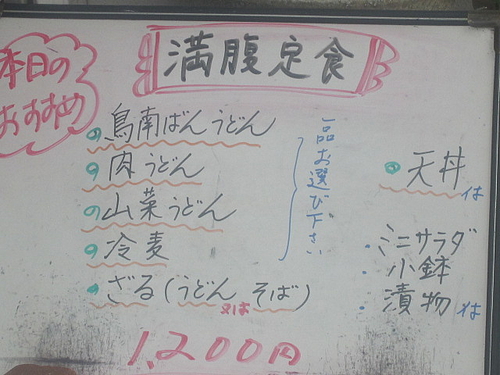 本日の
おすすめ
満腹定食
鳥南ばんうどん
肉うどん
山菜うどん
冷麦
ざる(うどん又はそば)
一品お選び下さい
天丼
は
ミニサラダ
小鉢
漬物
は
1,200円